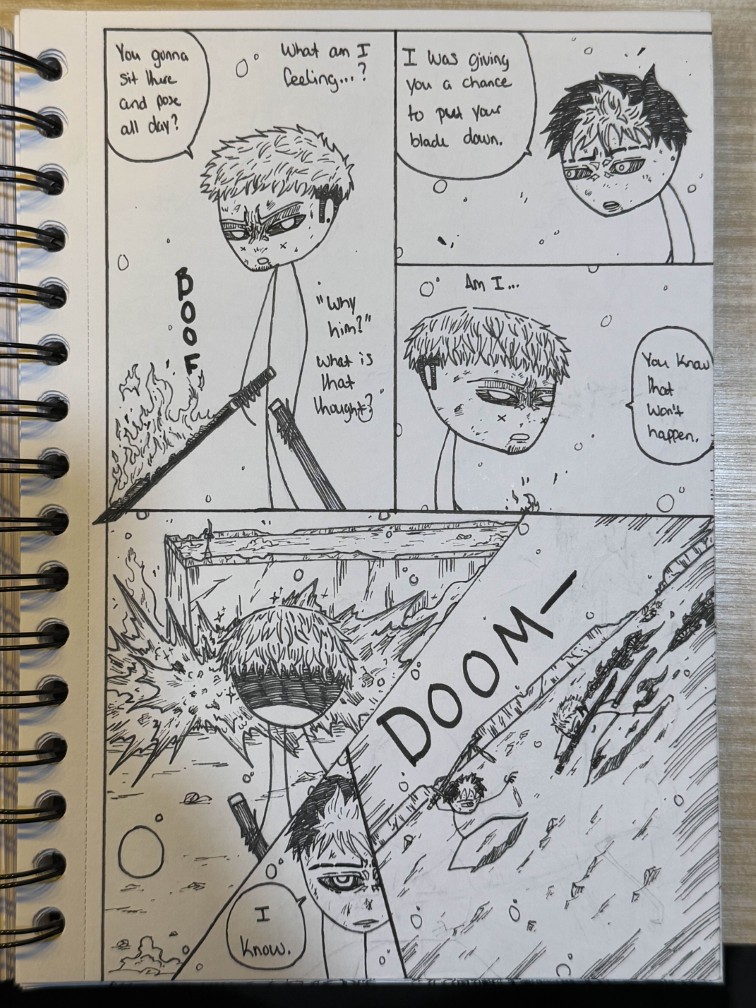 You gonna
sit there
and pose
all day?
What am I
feeling...?
DOOF
"Why
him?"
What is
that
thought?
I was giving
you a chance
to put your
blade down.
Am I...
You know
that
won't
happen.
DOOM—
I
know.